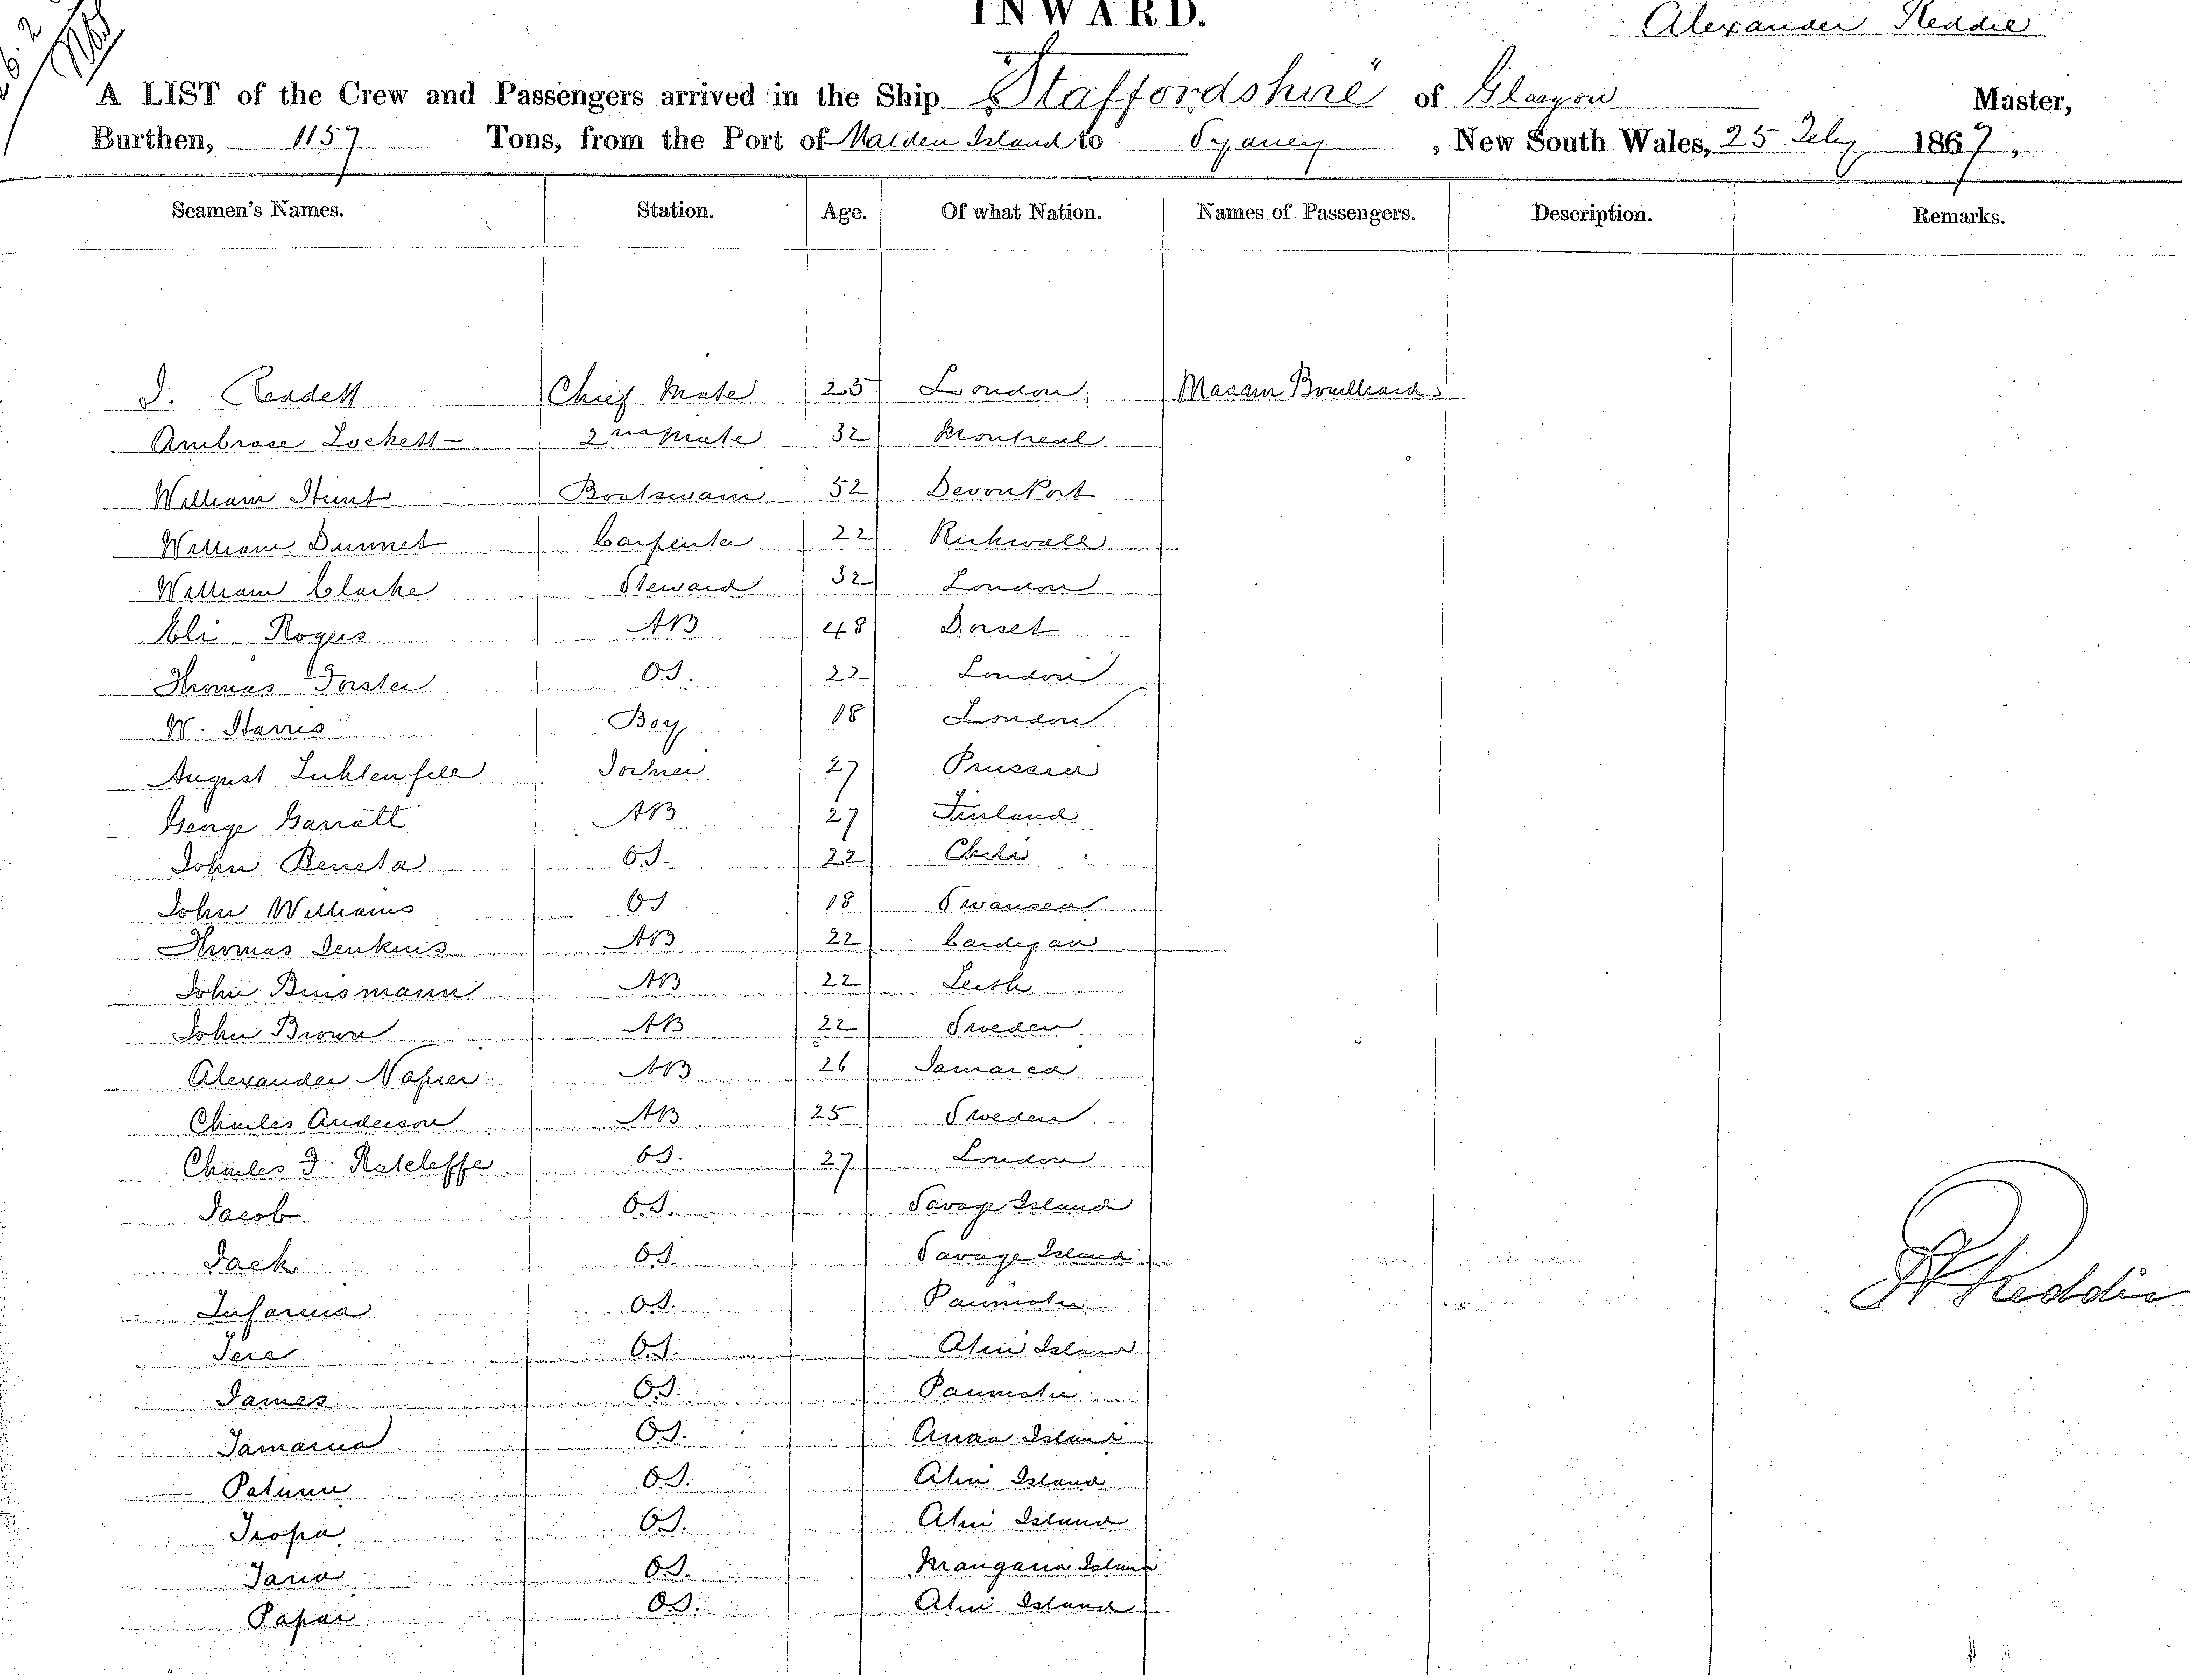 INWARD.
Alexander Reddie
A LIST of the Crew and Passengers arrived in the Ship "Staffordshire" of Glasgow Master,
Burthen, 1157 Tons, from the Port of Malden Island to Sydney, New South Wales, 25 Feby 1867,
Seamen's Names. Station. Age. Of what Nation. Names of Passengers. Description. Remarks.
J. Reddell Chief Mate 25 London Madam
Ambrose Lockett 2nd Mate 32 Montreal
William Hunt Boatswain 52 DevonPort
William Dunnet Carpenter 22 Kirkwall
William Clarke Steward 32 London
Eli Rogers AB 48 Dorset
Thomas Forster OS. 22 London
W. Harris Boy 18 London
August 27 Prussia
George Garratt AB 27 Finland
John Beneta OS. 22 Chili
John Williams OS 18 Swansea
Thomas Jenkins AB 22 Cardigan
John AB 22 Leith
John Brown AB 22 Sweden
Alexander Napier AB 26 Jamaica
Charles Anderson AB 25 Sweden
Charles J. Ratcleffe OS. 27 London
Jacob O.S. Savage Island
Jack O.S. Savage Island
O.S. Paumotu
O.S. Island
James O.S. Paumotu
Tamarua O.S. Anaa Island
O.S. Island
Tropa O.S. Island
O.S. Mangaia Island
Papai O.S. Island
A Reddie